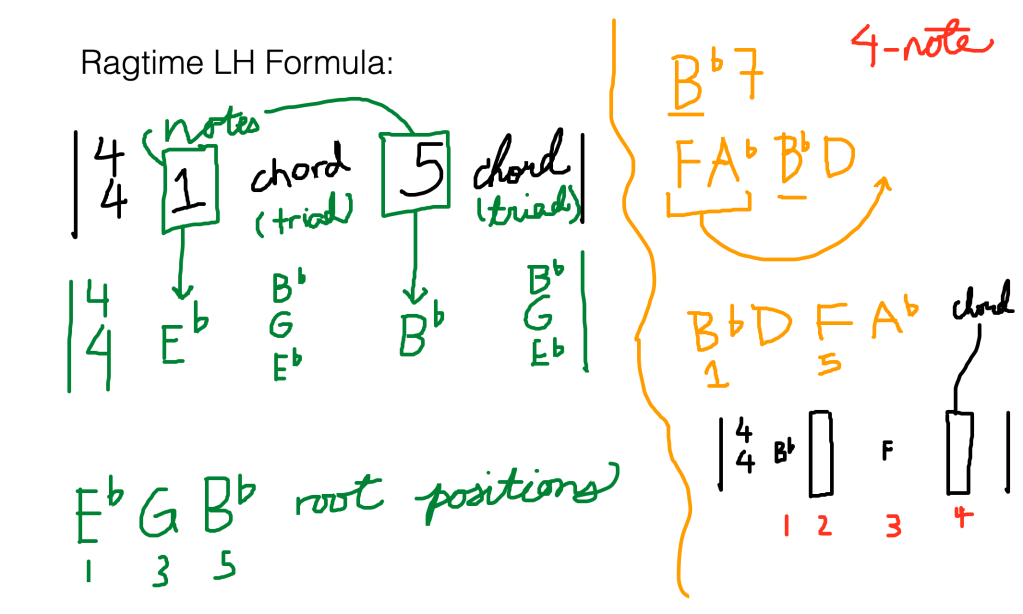 Ragtime LH Formula:
notes
4
4
1 chord 5 chord
(triad) (triad)
4
4
E♭ B♭ G E♭ B♭ B♭ G E♭
E♭ G B♭ root positions
1 3 5
4-note
B♭7
F A♭ B♭ D
B♭ D F A♭ chord
1 5
4
4
B♭ F
1 2 3 4